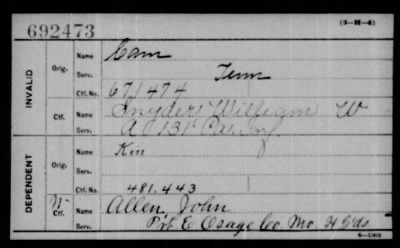 692473
(3-H-4)
INVALID
Orig.
Name
Cam
Serv.
Tenn
Ctf. No.
671474
Ctf.
Name
Snyder William W
Serv.
A 131
DEPENDENT
Orig.
Name
Kin
Serv.
Ctf. No.
481.443
W
Ctf.
Name
Allen, John
Serv.
Pvt E Osage Co Mo H Gds